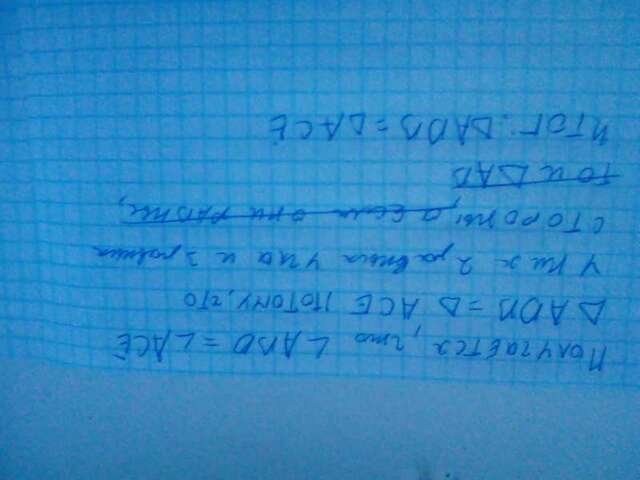 Получается, что ∠ABD = ∠ACE
△ADB = △ACE потому, что
у них 2 равных угла и 2 равных
стороны, а если они равны,
то и △AB
Итог: △ADB = △ACE